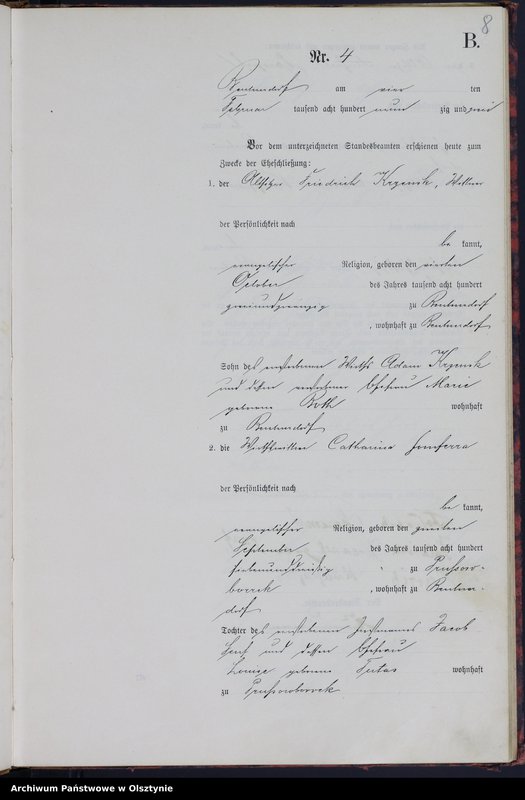 8
B.
Nr. 4
am vier ten
Februar tausend acht hundert neun zig und zwei
Vor dem unterzeichneten Standesbeamten erschienen heute zum
Zwecke der Eheschließung:
1. der Altsitzer Friedrich Krzensk, Wittwer
der Persönlichkeit nach
be kannt,
evangelischer Religion, geboren den vierten
October des Jahres tausend acht hundert
zweiundzwanzig zu
, wohnhaft zu
Sohn des verstorbenen Wirths Adam Krzensk
und dessen verstorbener Ehefrau Marie
geborene Both wohnhaft
zu
2. die Catharina
der Persönlichkeit nach
be kannt,
evangelischer Religion, geboren den zweiten
September des Jahres tausend acht hundert
siebenunddreißig zu Prussow-
borrek , wohnhaft zu
dorf
Tochter des verstorbenen Jacob
und dessen Ehefrau
Louise geborene wohnhaft
zu Prussowborrek
Archiwum Państwowe w Olsztynie